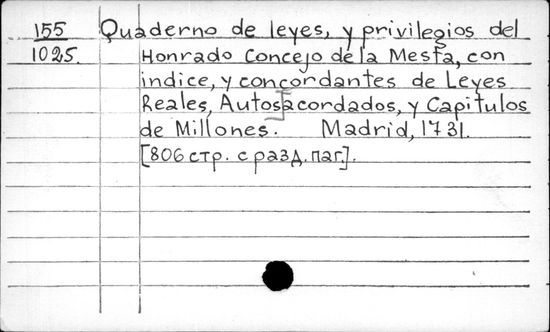 155 Quaderno de leyes, y privilegios del
1025. Honrado Concejo de la Mesta, con
indice, y concordantes de Leyes
Reales, Autos acordados, y Capitulos
de Millones. Madrid, 1731.
[806 стр. с разд. паг.].